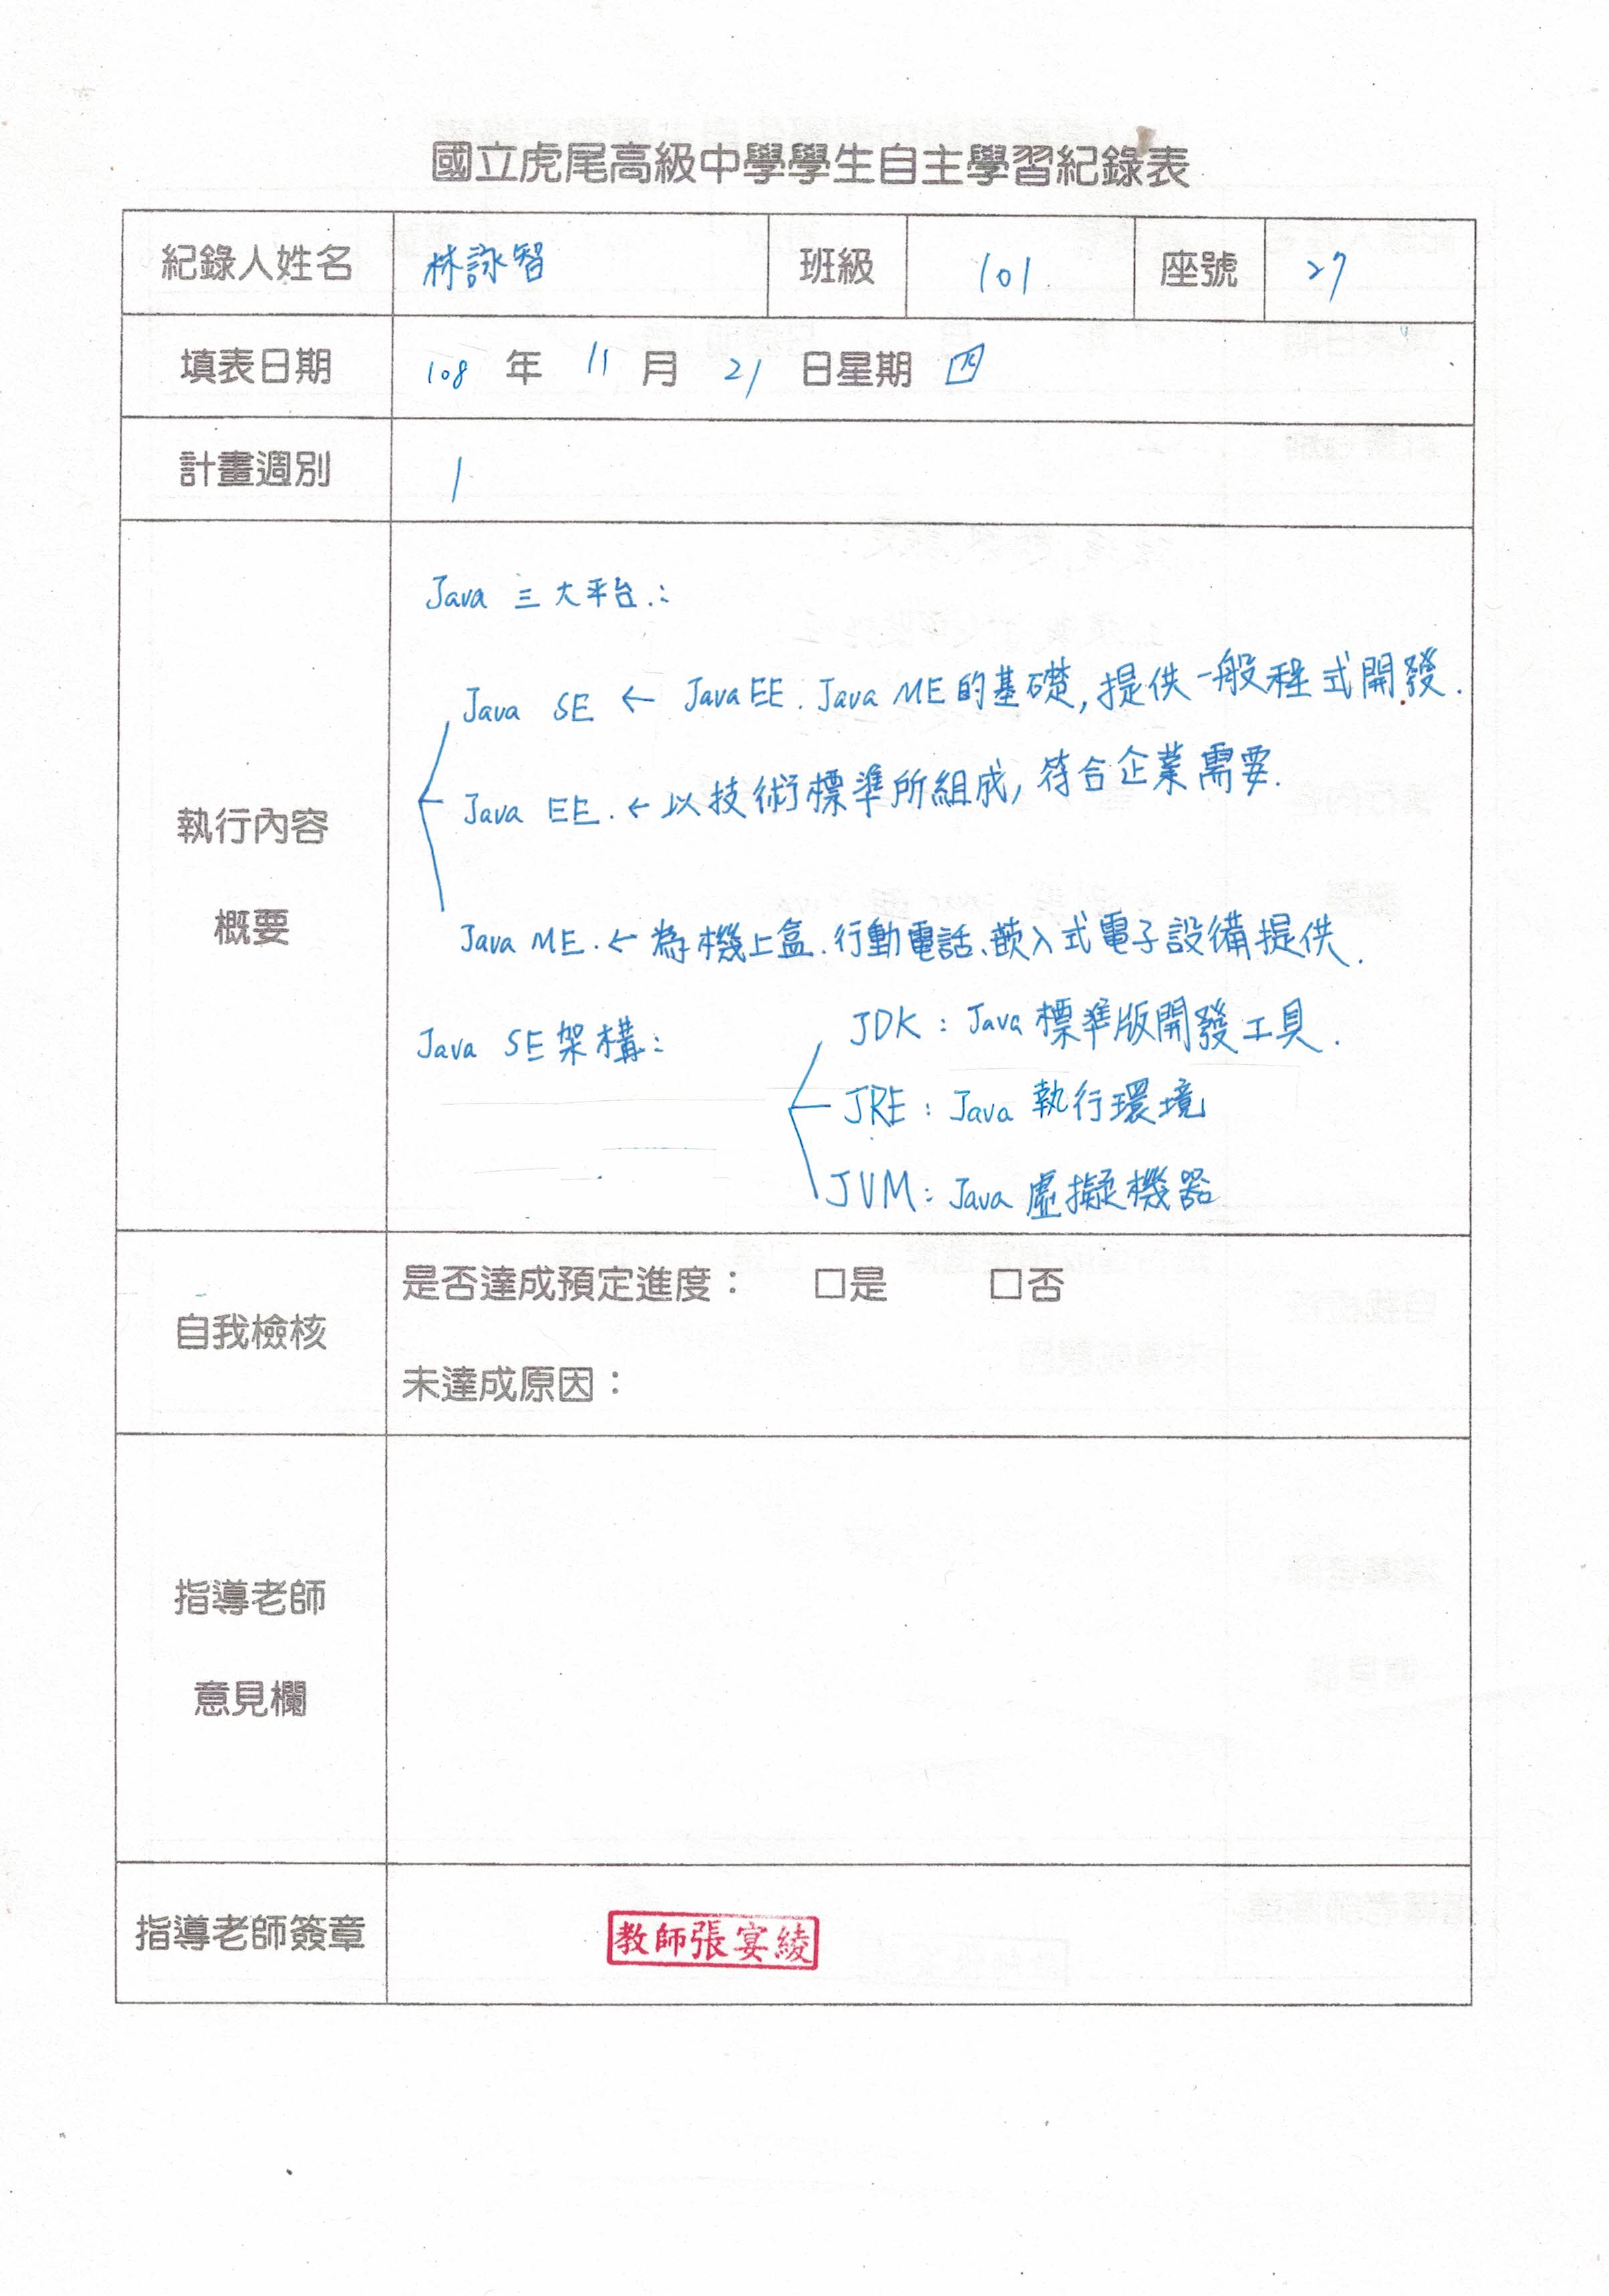 國立虎尾高級中學學生自主學習紀錄表
紀錄人姓名 林詠智 班級 101 座號 27
填表日期 108 年 11 月 21 日星期 四
計畫週別 1
執行內容
概要
Java 三大平台:
Java SE ← Java EE. Java ME 的基礎, 提供一般程式開發.
Java EE. ← 以技術標準所組成, 符合企業需要.
Java ME. ← 為機上盒. 行動電話、嵌入式電子設備提供.
Java SE 架構:
JDK : Java 標準版開發工具.
JRE : Java 執行環境
JVM : Java 虛擬機器
自我檢核
是否達成預定進度： □是 □否
未達成原因：
指導老師
意見欄
指導老師簽章 教師張宴綾